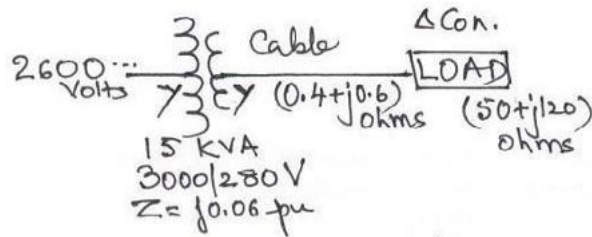 Δ Con.
2600... Volts
Cable
LOAD
Y Y
(0.4+j0.6) ohms
(50+j120) ohms
15 KVA
3000/280 V
Z= j0.06 pu